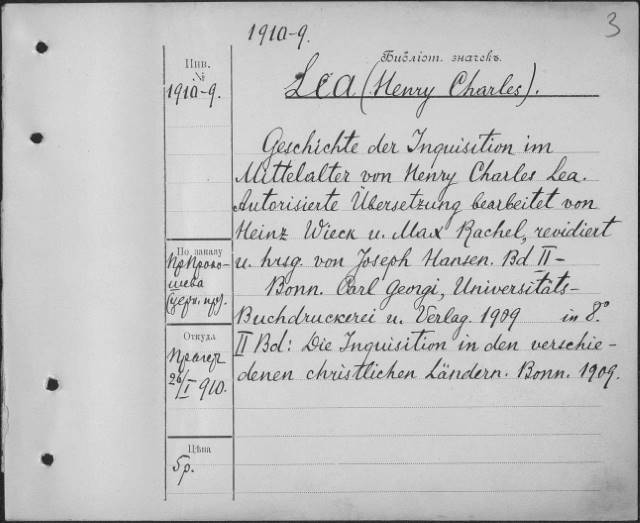 1910-9.
3
Инв.
№
1910-9.
Библіот. значекъ.
Lea (Henry Charles).
Geschichte der Inquisition im
Mittelalter von Henry Charles Lea.
Autorisierte Übersetzung bearbeitet von
Heinz Wieck u. Max Rachel, revidiert
u. hrsg. von Joseph Hansen. Bd II-
Bonn. Carl Georgi, Universitäts-
Buchdruckerei u. Verlag. 1909 in 8°
II Bd: Die Inquisition in den verschie-
denen christlichen Ländern. Bonn. 1909.
По заказу
Пр Проко-
шева
(церк. пр).
Откуда
Прагер
26/I 910.
Цѣна
5р.